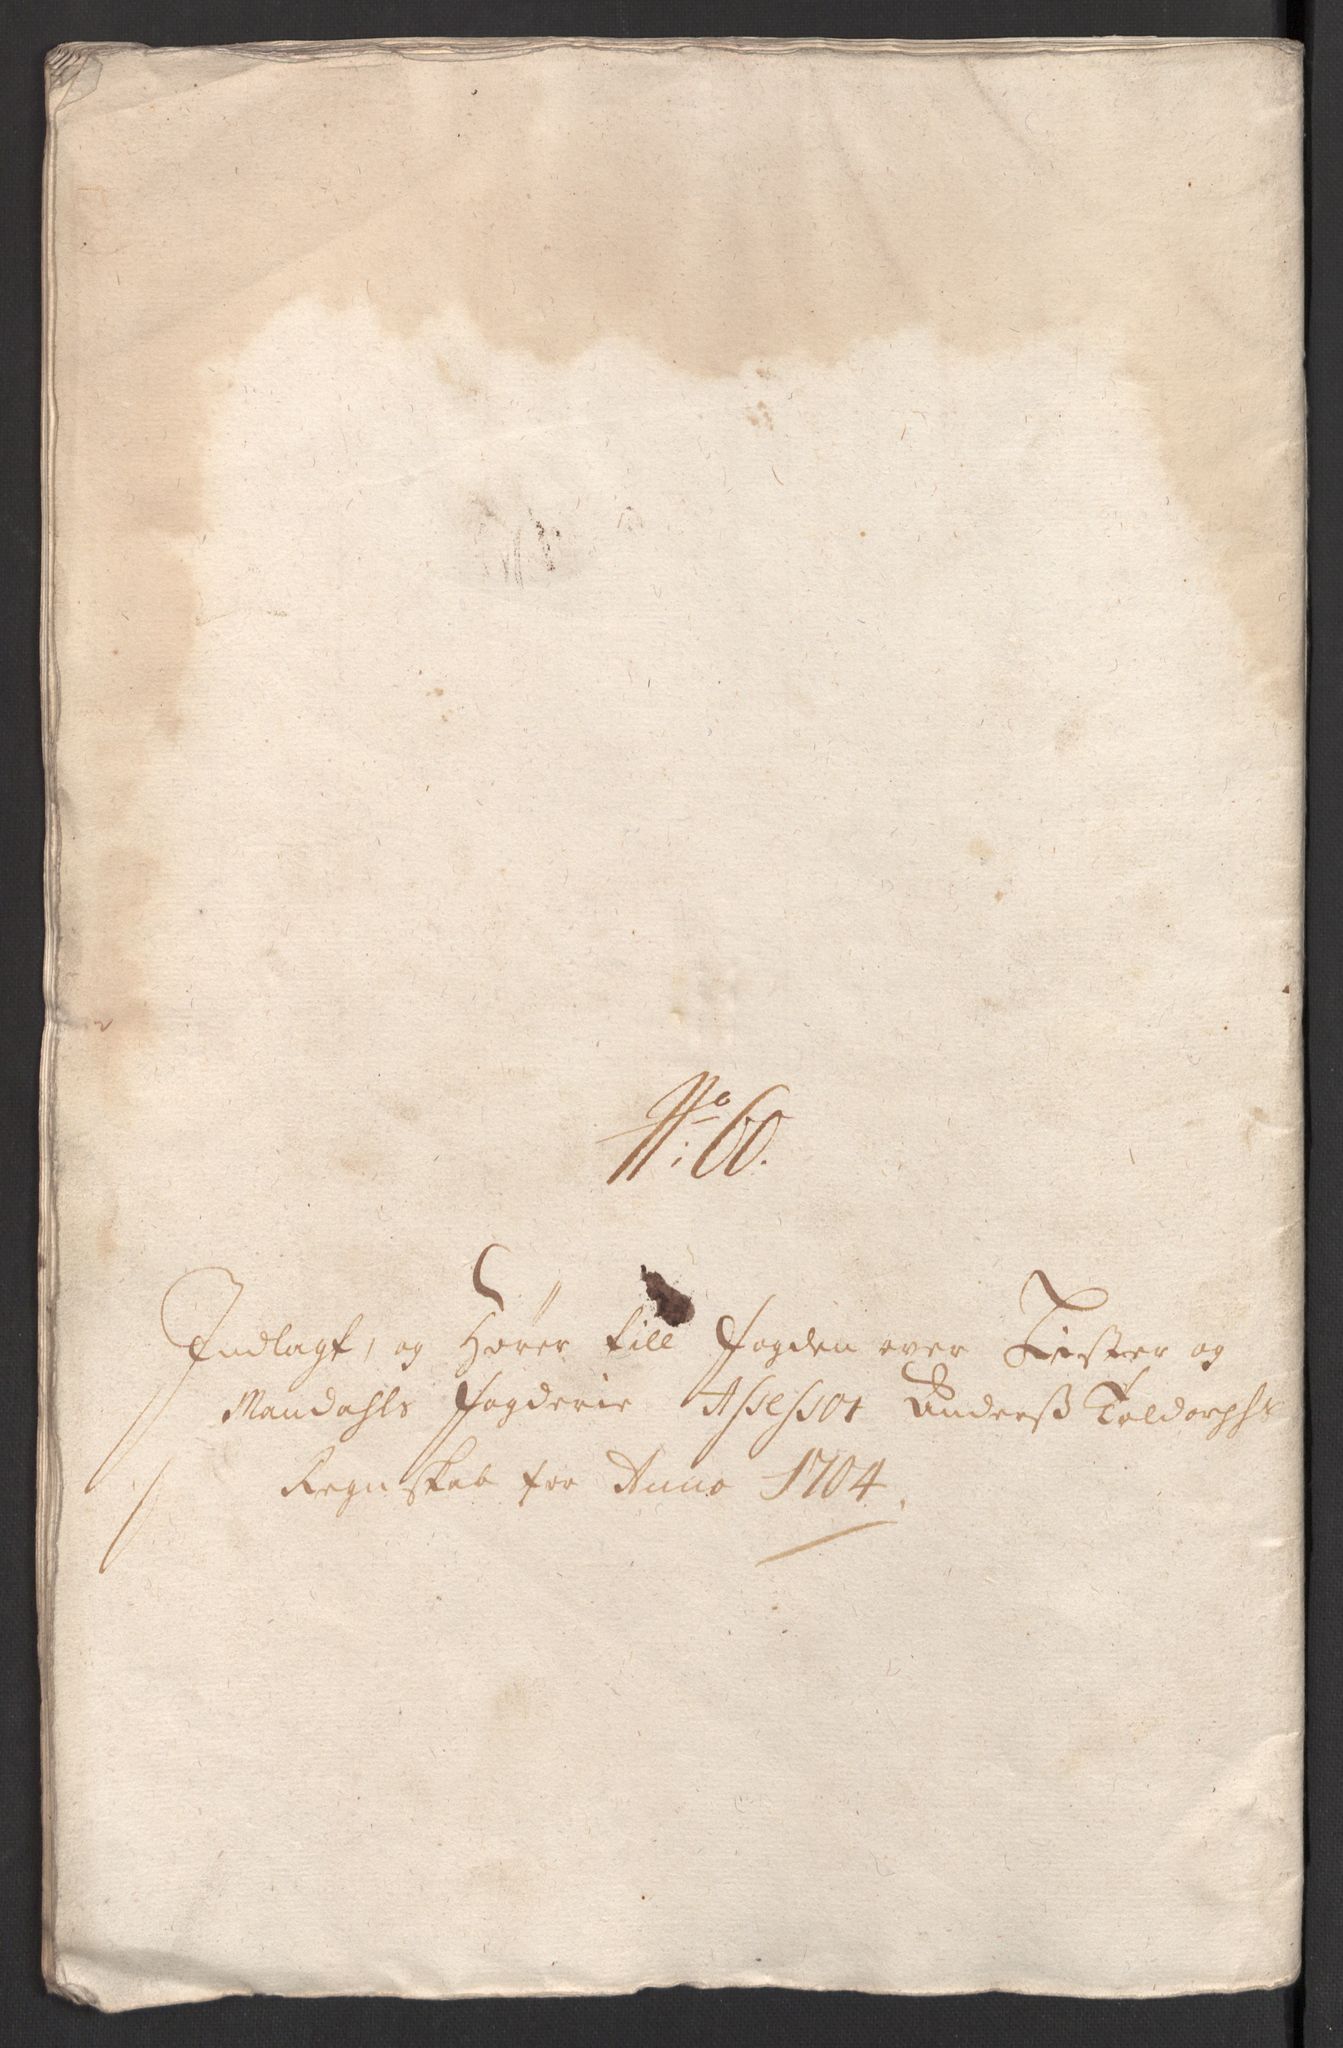 No: 60.
Indlagt, og Hører till Fogden over Lister og
Mandahls Fogderie Assessor Anderß Toldorphs
Regnskab for Anno 1704.